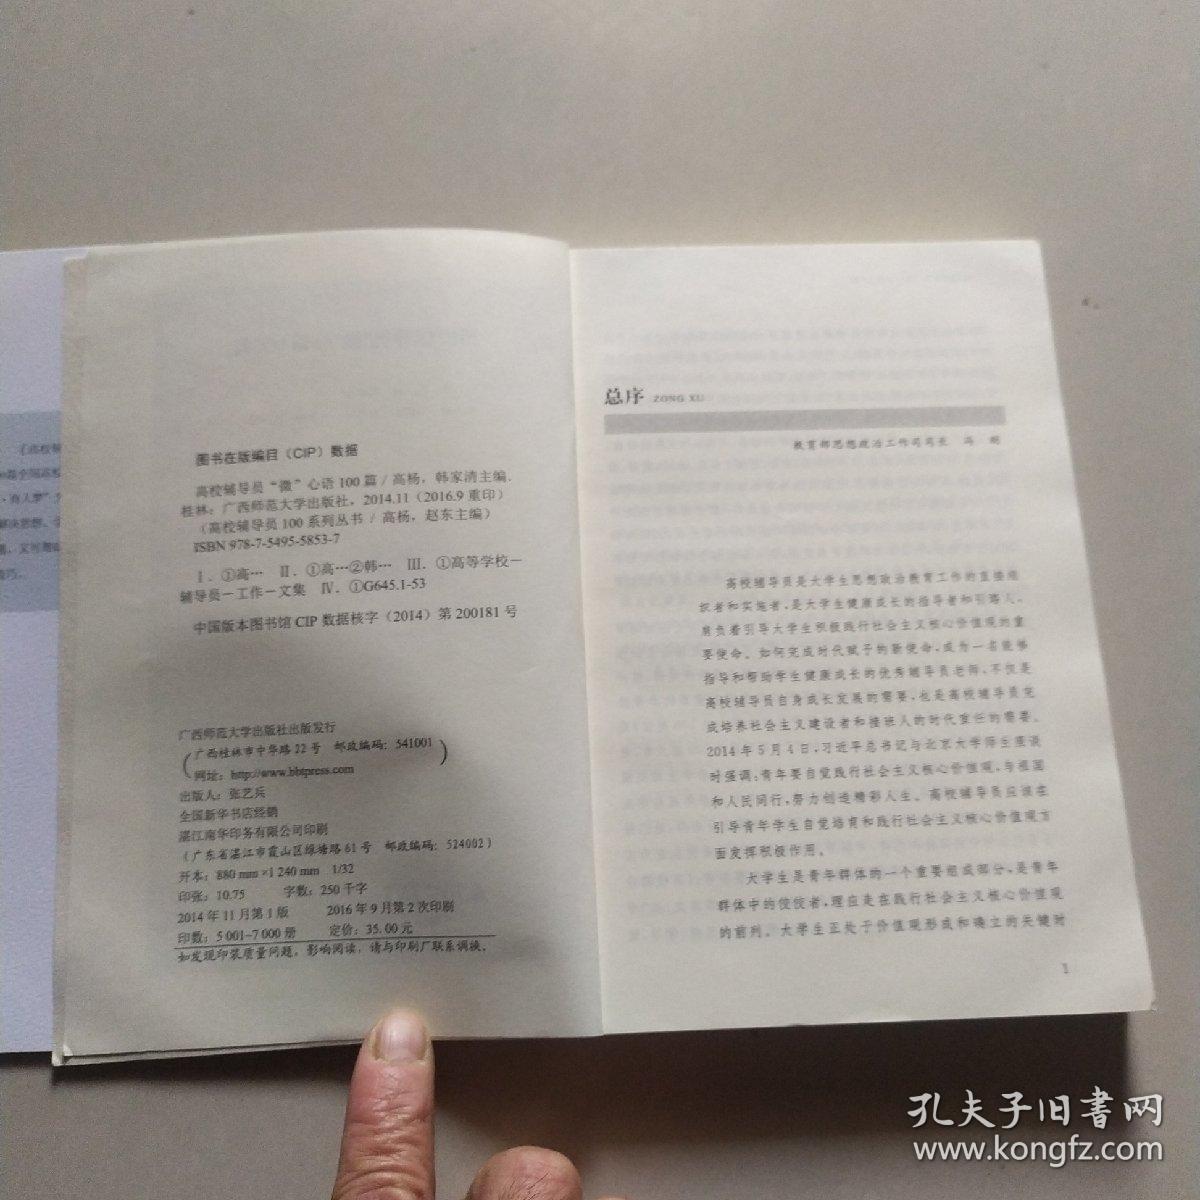 图书在版编目（CIP）数据
高校辅导员“微”心语100篇/高杨，韩家清主编.
桂林：广西师范大学出版社，2014.11（2016.9重印）
（高校辅导员100系列丛书/高杨，赵东主编）
ISBN 978-7-5495-5853-7
Ⅰ.①高… Ⅱ.①高…②韩… Ⅲ.①高等学校－
辅导员－工作－文集 Ⅳ.①G645.1-53
中国版本图书馆CIP数据核字（2014）第200181号
广西师范大学出版社出版发行
（广西桂林市中华路22号 邮政编码：541001
网址：http://www.bbtpress.com）
出版人：张艺兵
全国新华书店经销
湛江南华印务有限公司印刷
（广东省湛江市霞山区绿塘路61号 邮政编码：524002）
开本：880 mm×1 240 mm 1/32
印张：10.75 字数：250千字
2014年11月第1版 2016年9月第2次印刷
印数：5 001-7 000册 定价：35.00元
如发现印装质量问题，影响阅读，请与印刷厂联系调换。
总序 ZONG XU
教育部思想政治工作司司长 冯 刚
高校辅导员是大学生思想政治教育工作的直接组
织者和实施者，是大学生健康成长的指导者和引路人，
肩负着引导大学生积极践行社会主义核心价值观的重
要使命。如何完成时代赋予的新使命，成为一名能够
指导和帮助学生健康成长的优秀辅导员老师，不仅是
高校辅导员自身成长发展的需要，也是高校辅导员完
成培养社会主义建设者和接班人的时代责任的需要。
2014年5月4日，习近平总书记与北京大学师生座谈
时强调：青年要自觉践行社会主义核心价值观，与祖国
和人民同行，努力创造精彩人生。高校辅导员应该在
引导青年学生自觉培育和践行社会主义核心价值观方
面发挥积极作用。
大学生是青年群体的一个重要组成部分，是青年
群体中的佼佼者，理应走在践行社会主义核心价值观
的前列。大学生正处于价值观形成和确立的关键时
1
孔夫子旧書网
www.kongfz.com